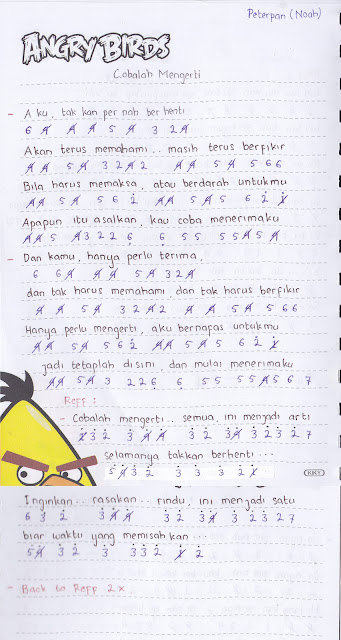 Peterpan (Noah)
ANGRY BIRDS
Cobalah Mengerti
- Aku, tak kan per nah ber henti
6 4 4 4 5 4 3 2 4
Akan terus memahami.. masih terus berfikir
4 4 5 4 3 2 4 2 4 4 5 4 5 6 6
Bila harus memaksa, atau berdarah untukmu
4 4 5 4 5 6 2 4 4 5 4 5 6 2 1
Apapun itu asalkan, kau coba menerimaku
4 4 5 4 3 2 2 6 6 5 5 5 5 4 5 4
- Dan kamu, hanya perlu terima,
6 6 4 4 4 5 4 3 2 4
dan tak harus memahami, dan tak harus berfikir
4 4 5 4 3 2 4 2 4 4 5 4 5 6 6
Hanya perlu mengerti, aku bernapas untukmu
4 4 5 4 5 6 2 4 4 5 4 5 6 2 1
jadi tetaplah disini, dan mulai menerimaku
4 4 5 4 3 2 2 6 6 5 5 5 5 4 5 6 7
Reff :
- Cobalah mengerti.. semua, ini menjadi arti
1 3 2 3 4 4 3 2 3 4 3 2 3 2 7
selamanya takkan berhenti ...
5 4 3 2 3 3 3 2 1
KIKY
Inginkan.. rasakan.. rindu, ini menjadi satu
6 3 2 3 4 4 3 2 3 4 3 2 3 2 7
biar waktu yang memisahkan...
5 4 3 2 3 3 3 2 1 2
- Back to Reff 2x